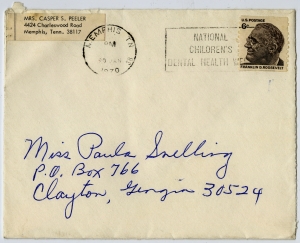 MRS. CASPER S. PEELER
4424 Charleswood Road
Memphis, Tenn. 38117
MEMPHIS, TN
PM
JAN
1970
NATIONAL
CHILDREN'S
DENTAL HEALTH
U.S. POSTAGE
6¢
FRANKLIN D. ROOSEVELT
Miss Paula Snelling
P.O. Box 766
Clayton, Georgia 30524